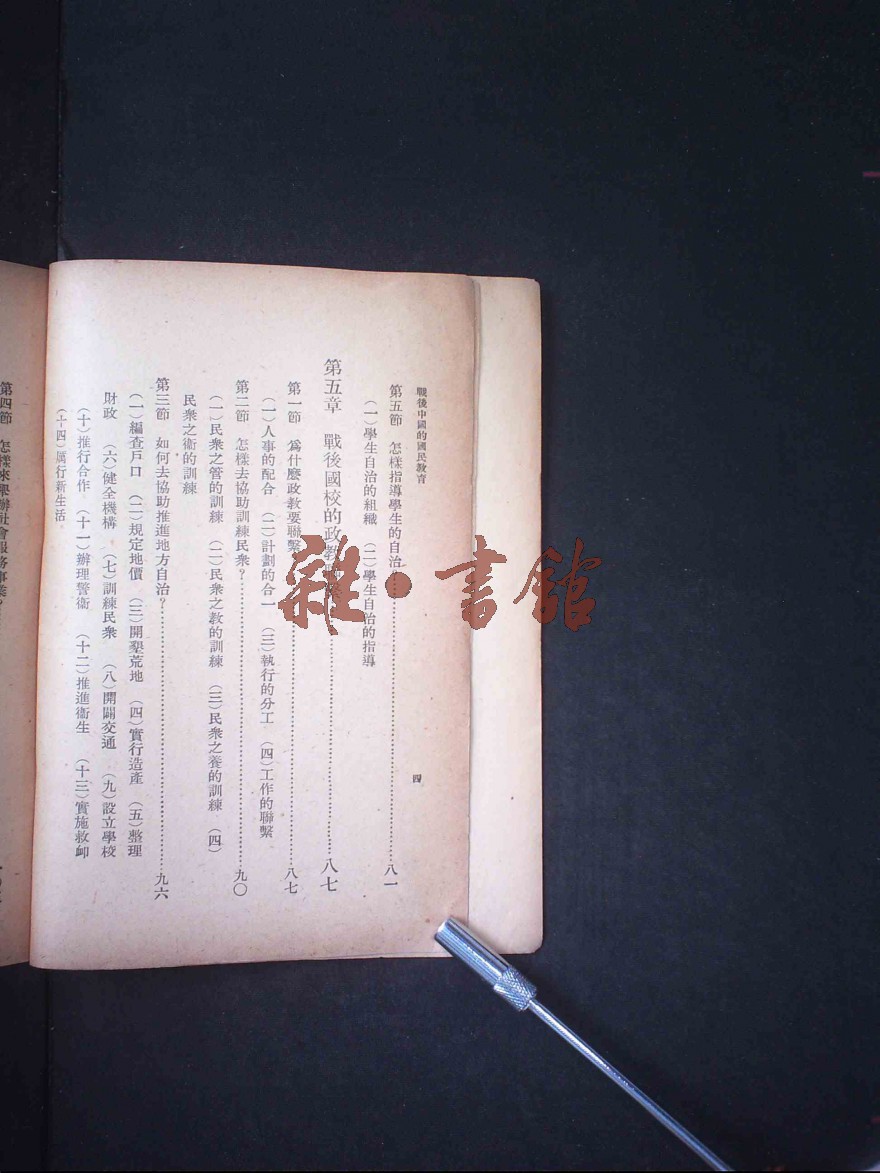 戰後中國的國民教育
四
第五節　怎樣指導學生的自治……八一
(一)學生自治的組織　(二)學生自治的指導
第五章　戰後國校的政教……八七
第一節　爲什麼政教要聯繫……八七
(一)人事的配合　(二)計劃的合一　(三)執行的分工　(四)工作的聯繫
第二節　怎樣去協助訓練民衆？……九〇
(一)民衆之管的訓練　(二)民衆之教的訓練　(三)民衆之養的訓練　(四)
民衆之衛的訓練
第三節　如何去協助推進地方自治？……九六
(一)編查戶口　(二)規定地價　(三)開墾荒地　(四)實行造產　(五)整理
財政　(六)健全機構　(七)訓練民衆　(八)開闢交通　(九)設立學校
(十)推行合作　(十一)辦理警衛　(十二)推進衞生　(十三)實施救卹
(十四)厲行新生活
第四節　怎樣來舉辦社會服務事業？
雜·書館